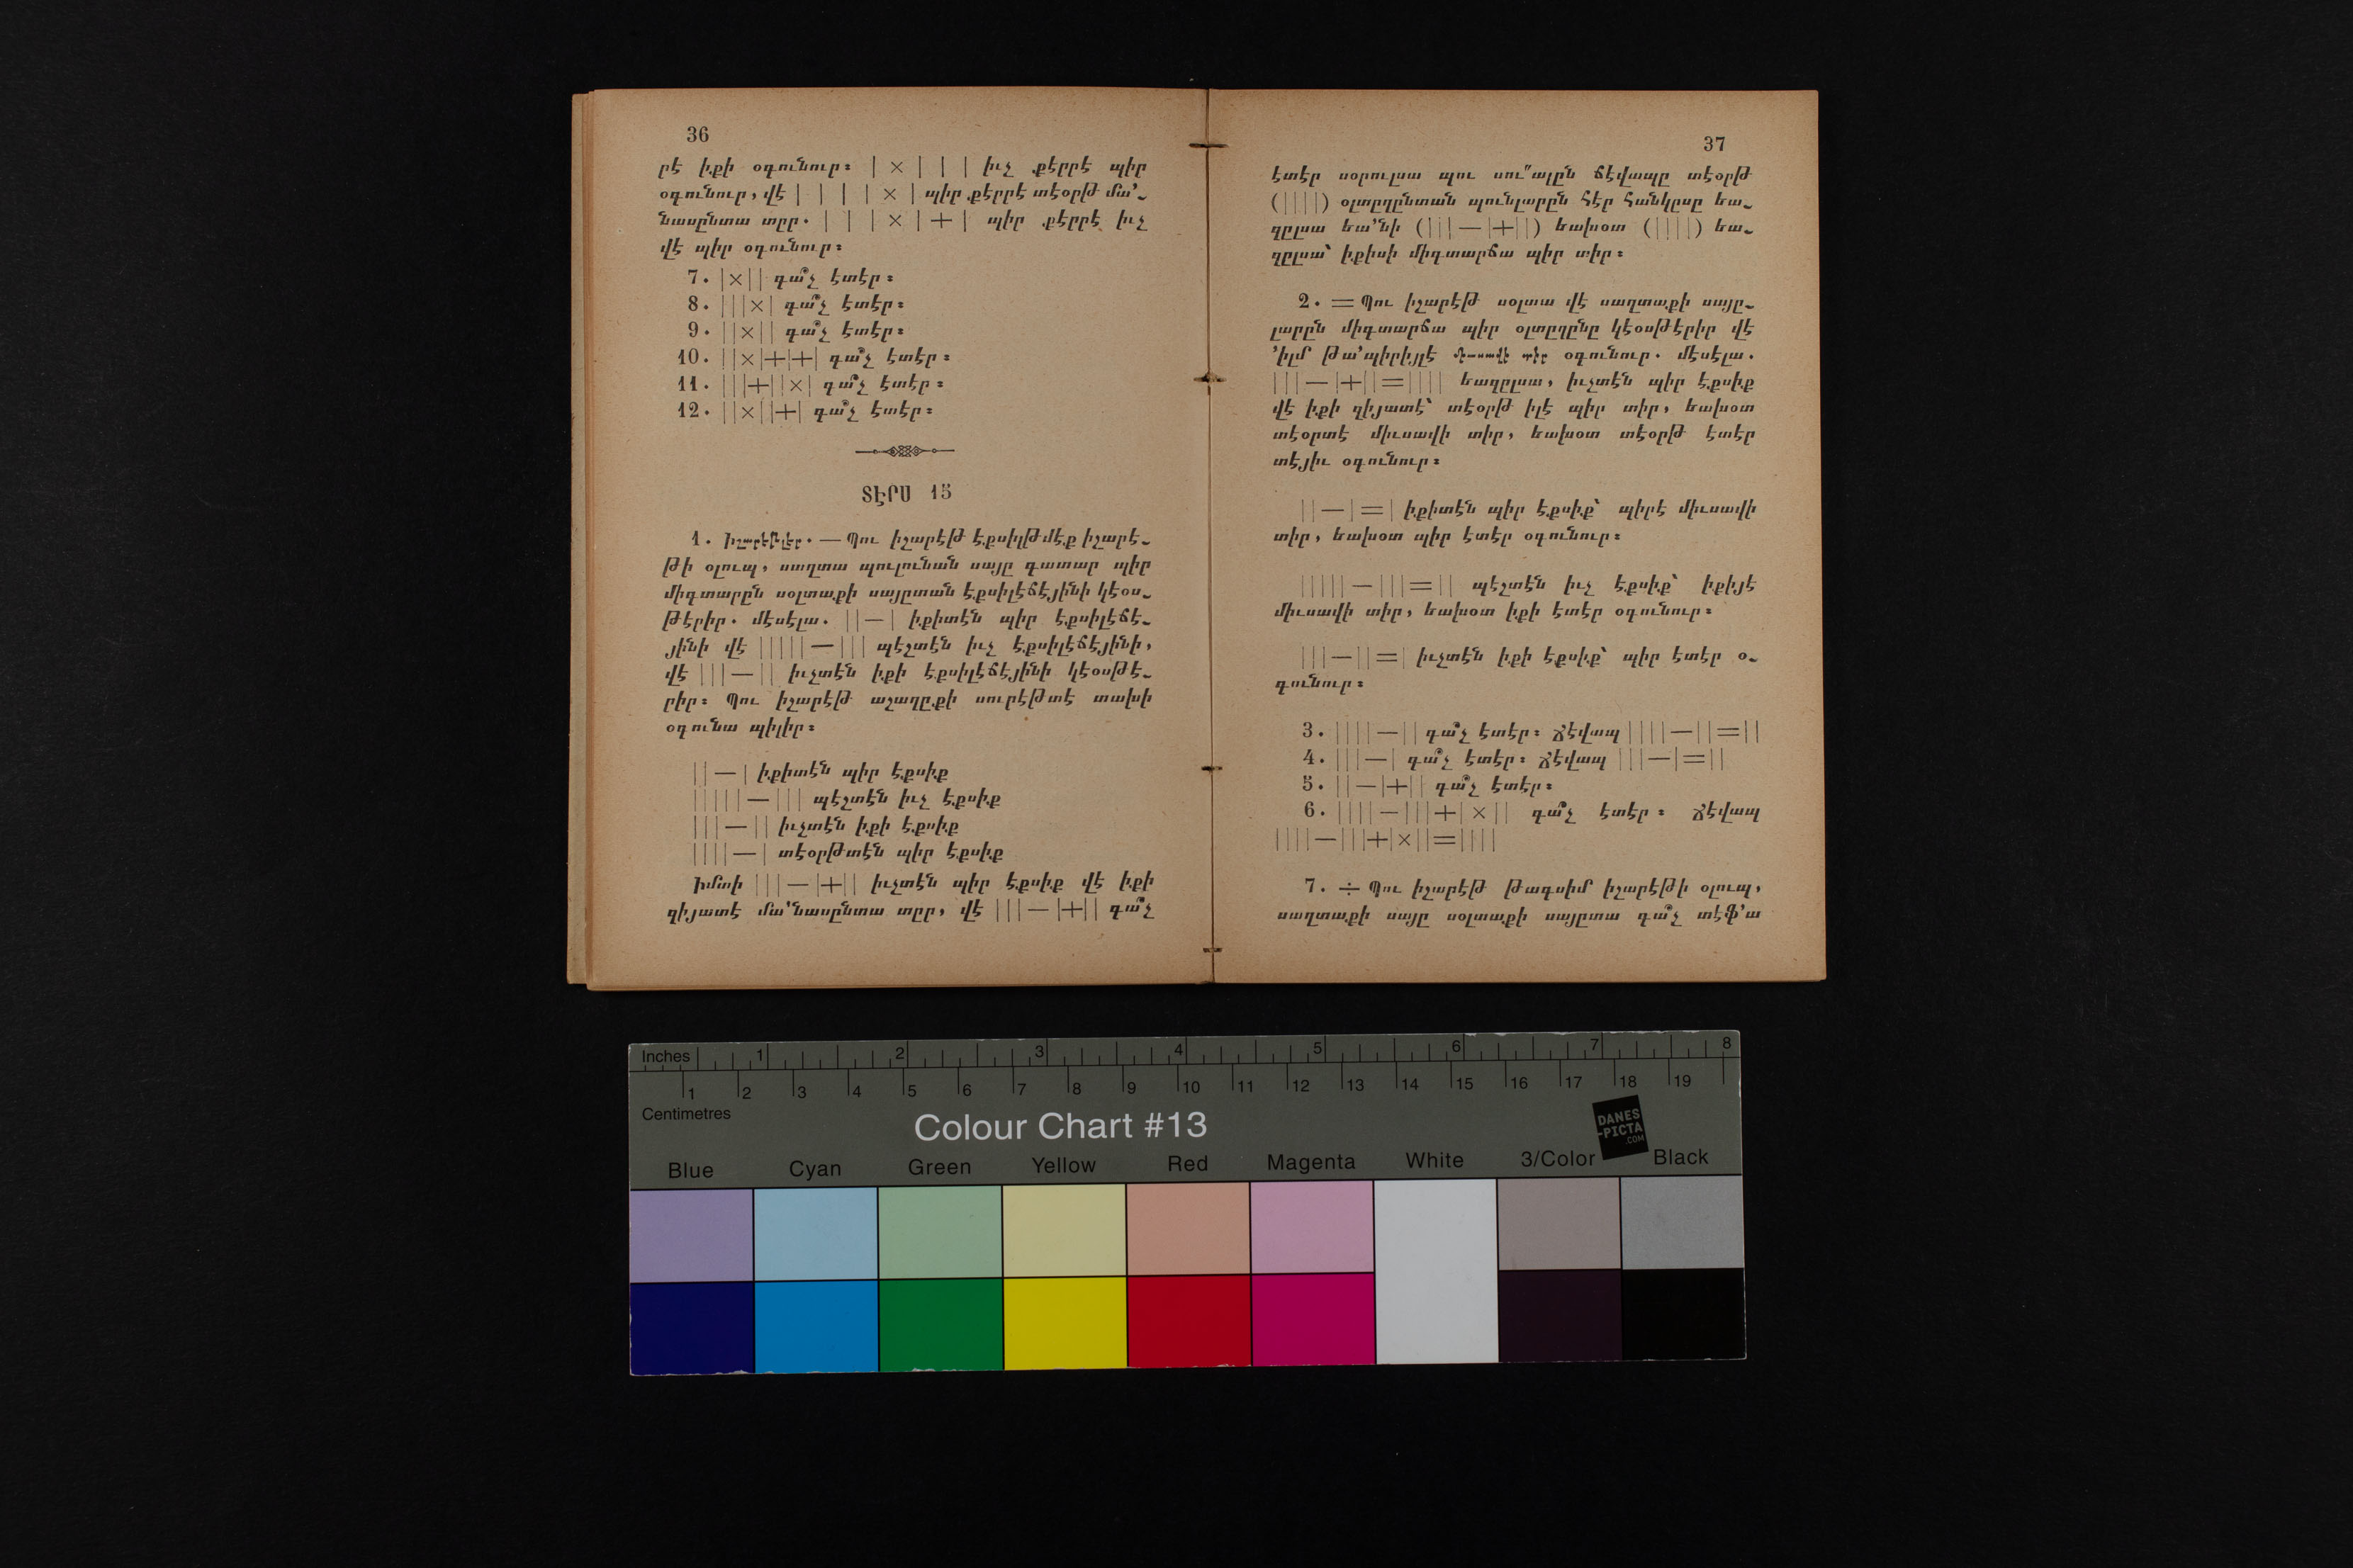 36
րէ իքի օգունուր։ | × | | | իւչ քէրրէ պիր
օգունուր, վէ | | | | × | պիր քէրրէ տէօրթ մա՚֊
նասընտա տըր. | | | × | + | պիր քէրրէ իւչ
վէ պիր օգունուր։
7. |×|| գա՞չ էտէր։
8. |||×| գա՞չ էտէր։
9. ||×|| գա՞չ էտէր։
10. ||×|+|+| գա՞չ էտէր։
11. |||+||×| գա՞չ էտէր։
12. ||×||+| գա՞չ էտէր։
ՏԷՐՍ 15
1. Իշարէթլէր. — Պու իշարէթ էքսիլթմէք իշարէ֊
թի օլուպ, սաղտա պուլունան սայը գատար պիր
միգտարըն սօլտաքի սայըտան էքսիլէճէյինի կէօս֊
թէրիր. մէսէլա. ||—| իքիտէն պիր էքսիլէճէ֊
յինի վէ |||||—||| պէշտէն իւչ էքսիլէճէյինի,
վէ |||—|| իւչտէն իքի էքսիլէճէյինի կէօսթէ֊
րիր։ Պու իշարէթ աշաղըքի սուրէթտէ տախի
օգունա պիլիր։
||—| իքիտէն պիր էքսիք
|||||—||| պէշտէն իւչ էքսիք
|||—|| իւչտէն իքի էքսիք
||||—| տէօրթտէն պիր էքսիք
Իմտի |||—|+|| իւչտէն պիր էքսիք վէ իքի
զիյատէ մա՚նասընտա տըր, վէ |||—|+|| գա՞չ
37
էտէր սօրուլսա պու սու՞ալըն ճէվապը տէօրթ
(||||) օլտըղընտան պունլարըն հէր հանկըսը եա֊
զըլսա եա՚նի (|||—|+||) եախօտ (||||) եա֊
զըլսա՝ իքիսի միգտարճա պիր տիր։
2. = Պու իշարէթ սօլտա վէ սաղտաքի սայը֊
լարըն միգտարճա պիր օլտըղընը կէօսթէրիր վէ
՚իլմ թա՚պիրիյլէ միւսավի տիր օգունուր. մէսէլա.
|||—|+||=|||| եազըլսա, իւչտէն պիր էքսիք
վէ իքի զիյատէ՝ տէօրթ իլէ պիր տիր, եախօտ
տէօրտէ միւսավի տիր, եախօտ տէօրթ էտէր
տէյիւ օգունուր։
||—|=| իքիտէն պիր էքսիք՝ պիրէ միւսավի
տիր, եախօտ պիր էտէր օգունուր։
|||||—|||=|| պէշտէն իւչ էքսիք՝ իքիյէ
միւսավի տիր, եախօտ իքի էտէր օգունուր։
|||—||=| իւչտէն իքի էքսիք՝ պիր էտէր օ֊
գունուր։
3. ||||—|| գա՞չ էտէր։ Ճէվապ ||||—||=||
4. |||—| գա՞չ էտէր։ Ճէվապ |||—|=||
5. ||—|+|| գա՞չ էտէր։
6. ||||—|||+|×|| գա՞չ էտէր։ Ճէվապ
||||—|||+|×||=||||
7. ÷ Պու իշարէթ թագսիմ իշարէթի օլուպ,
սաղտաքի սայը սօլտաքի սայըտա գա՞չ տէֆ՚ա
Inches 1 2 3 4 5 6 7 8
1 2 3 4 5 6 7 8 9 10 11 12 13 14 15 16 17 18 19
Centimetres
Colour Chart #13
DANES
-PICTA
.COM
Blue Cyan Green Yellow Red Magenta White 3/Color Black